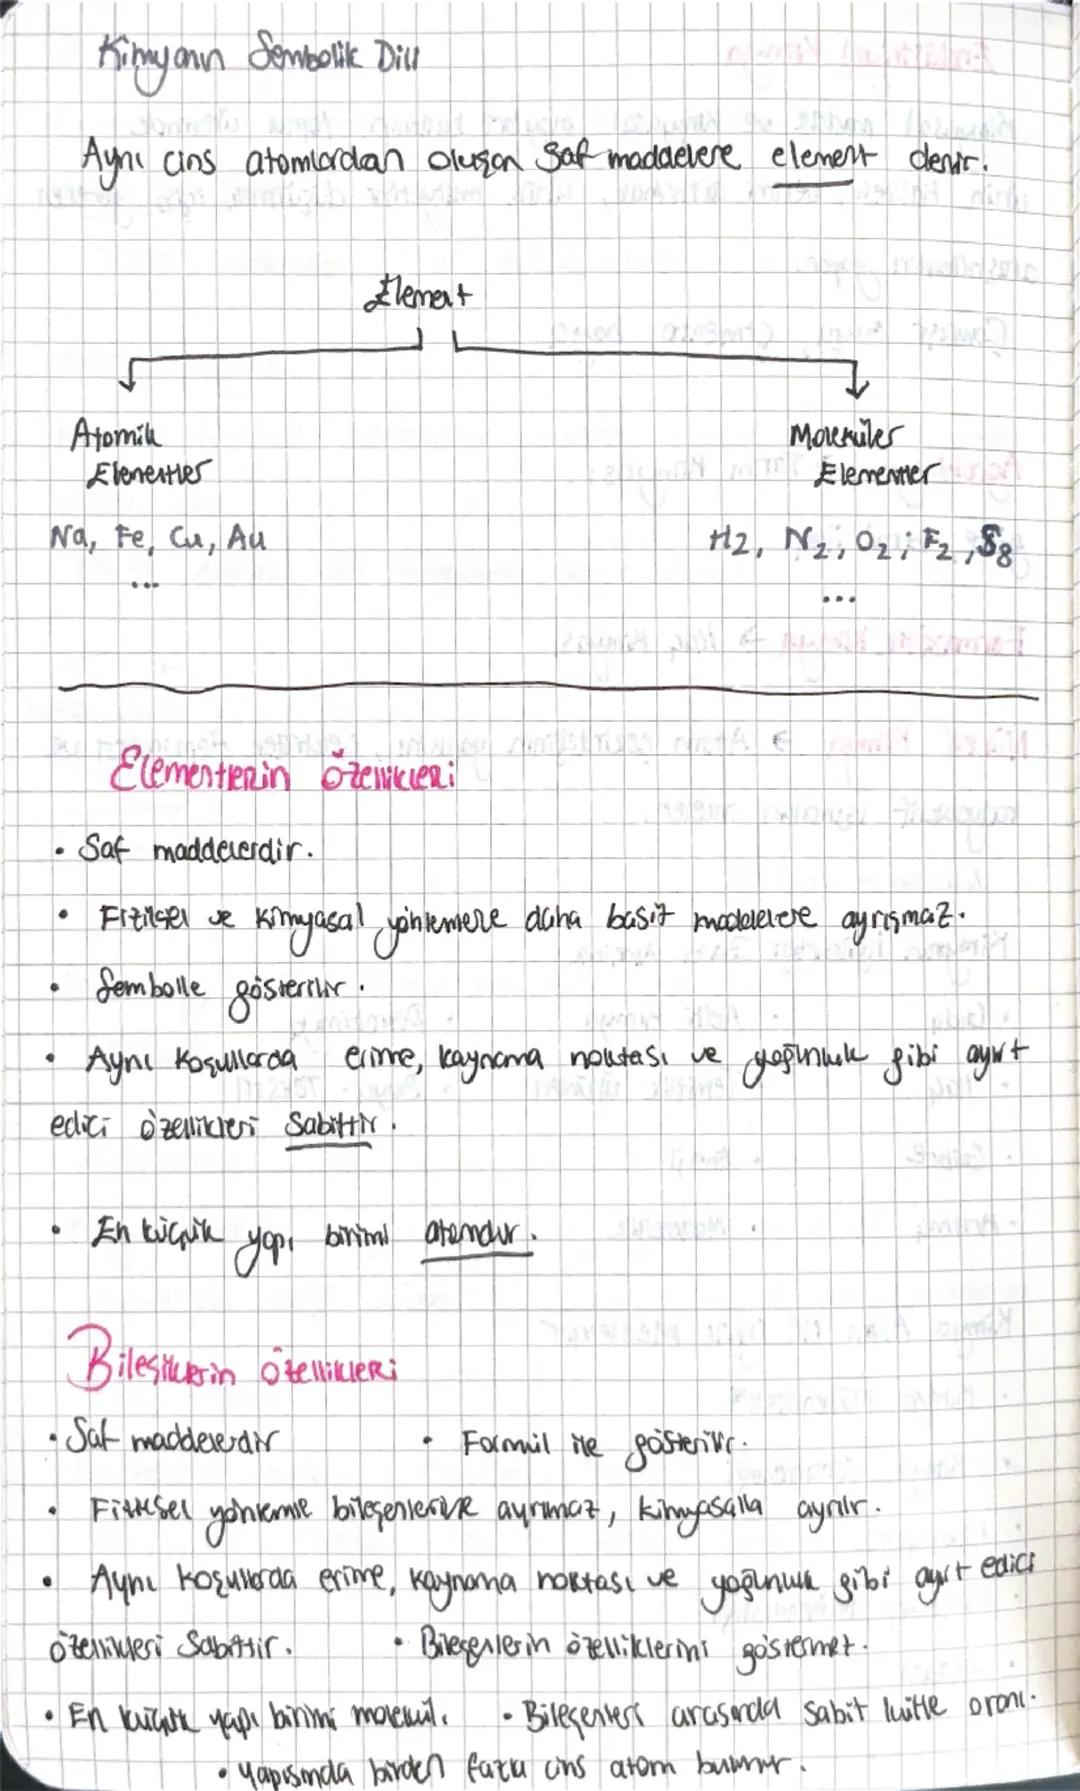 Kimyanın Sembolik Dili
Aynı cins atomlardan oluşan saf maddelere element denir.
Element
Atomik
Elementler
Moleküler
Elementler
Na, Fe, Cu, Au
...
H2, N2, O2, F2, S8
...
Elementlerin Özellikleri
• Saf maddelerdir.
• Fiziksel ve kimyasal yöntemlerle daha basit maddelere ayrışmaz.
• Sembolle gösterilir.
• Aynı koşullarda erime, kaynama noktası ve yoğunluk gibi ayırt
edici özellikleri sabittir.
• En küçük yapı birimi atomdur.
Bileşiklerin Özellikleri
• Saf maddelerdir
• Formül ile gösterilir.
• Fiziksel yöntemle bileşenlerine ayrılmaz, kimyasalla ayrılır.
• Aynı koşullarda erime, kaynama noktası ve yoğunluk gibi ayırt edici
özellikleri sabittir.
• Bileşenlerin özelliklerini göstermez.
• En küçük yapı birimi molekül.
• Bileşenleri arasında sabit kütle oranı.
• Yapısında birden fazla cins atom bulunur.